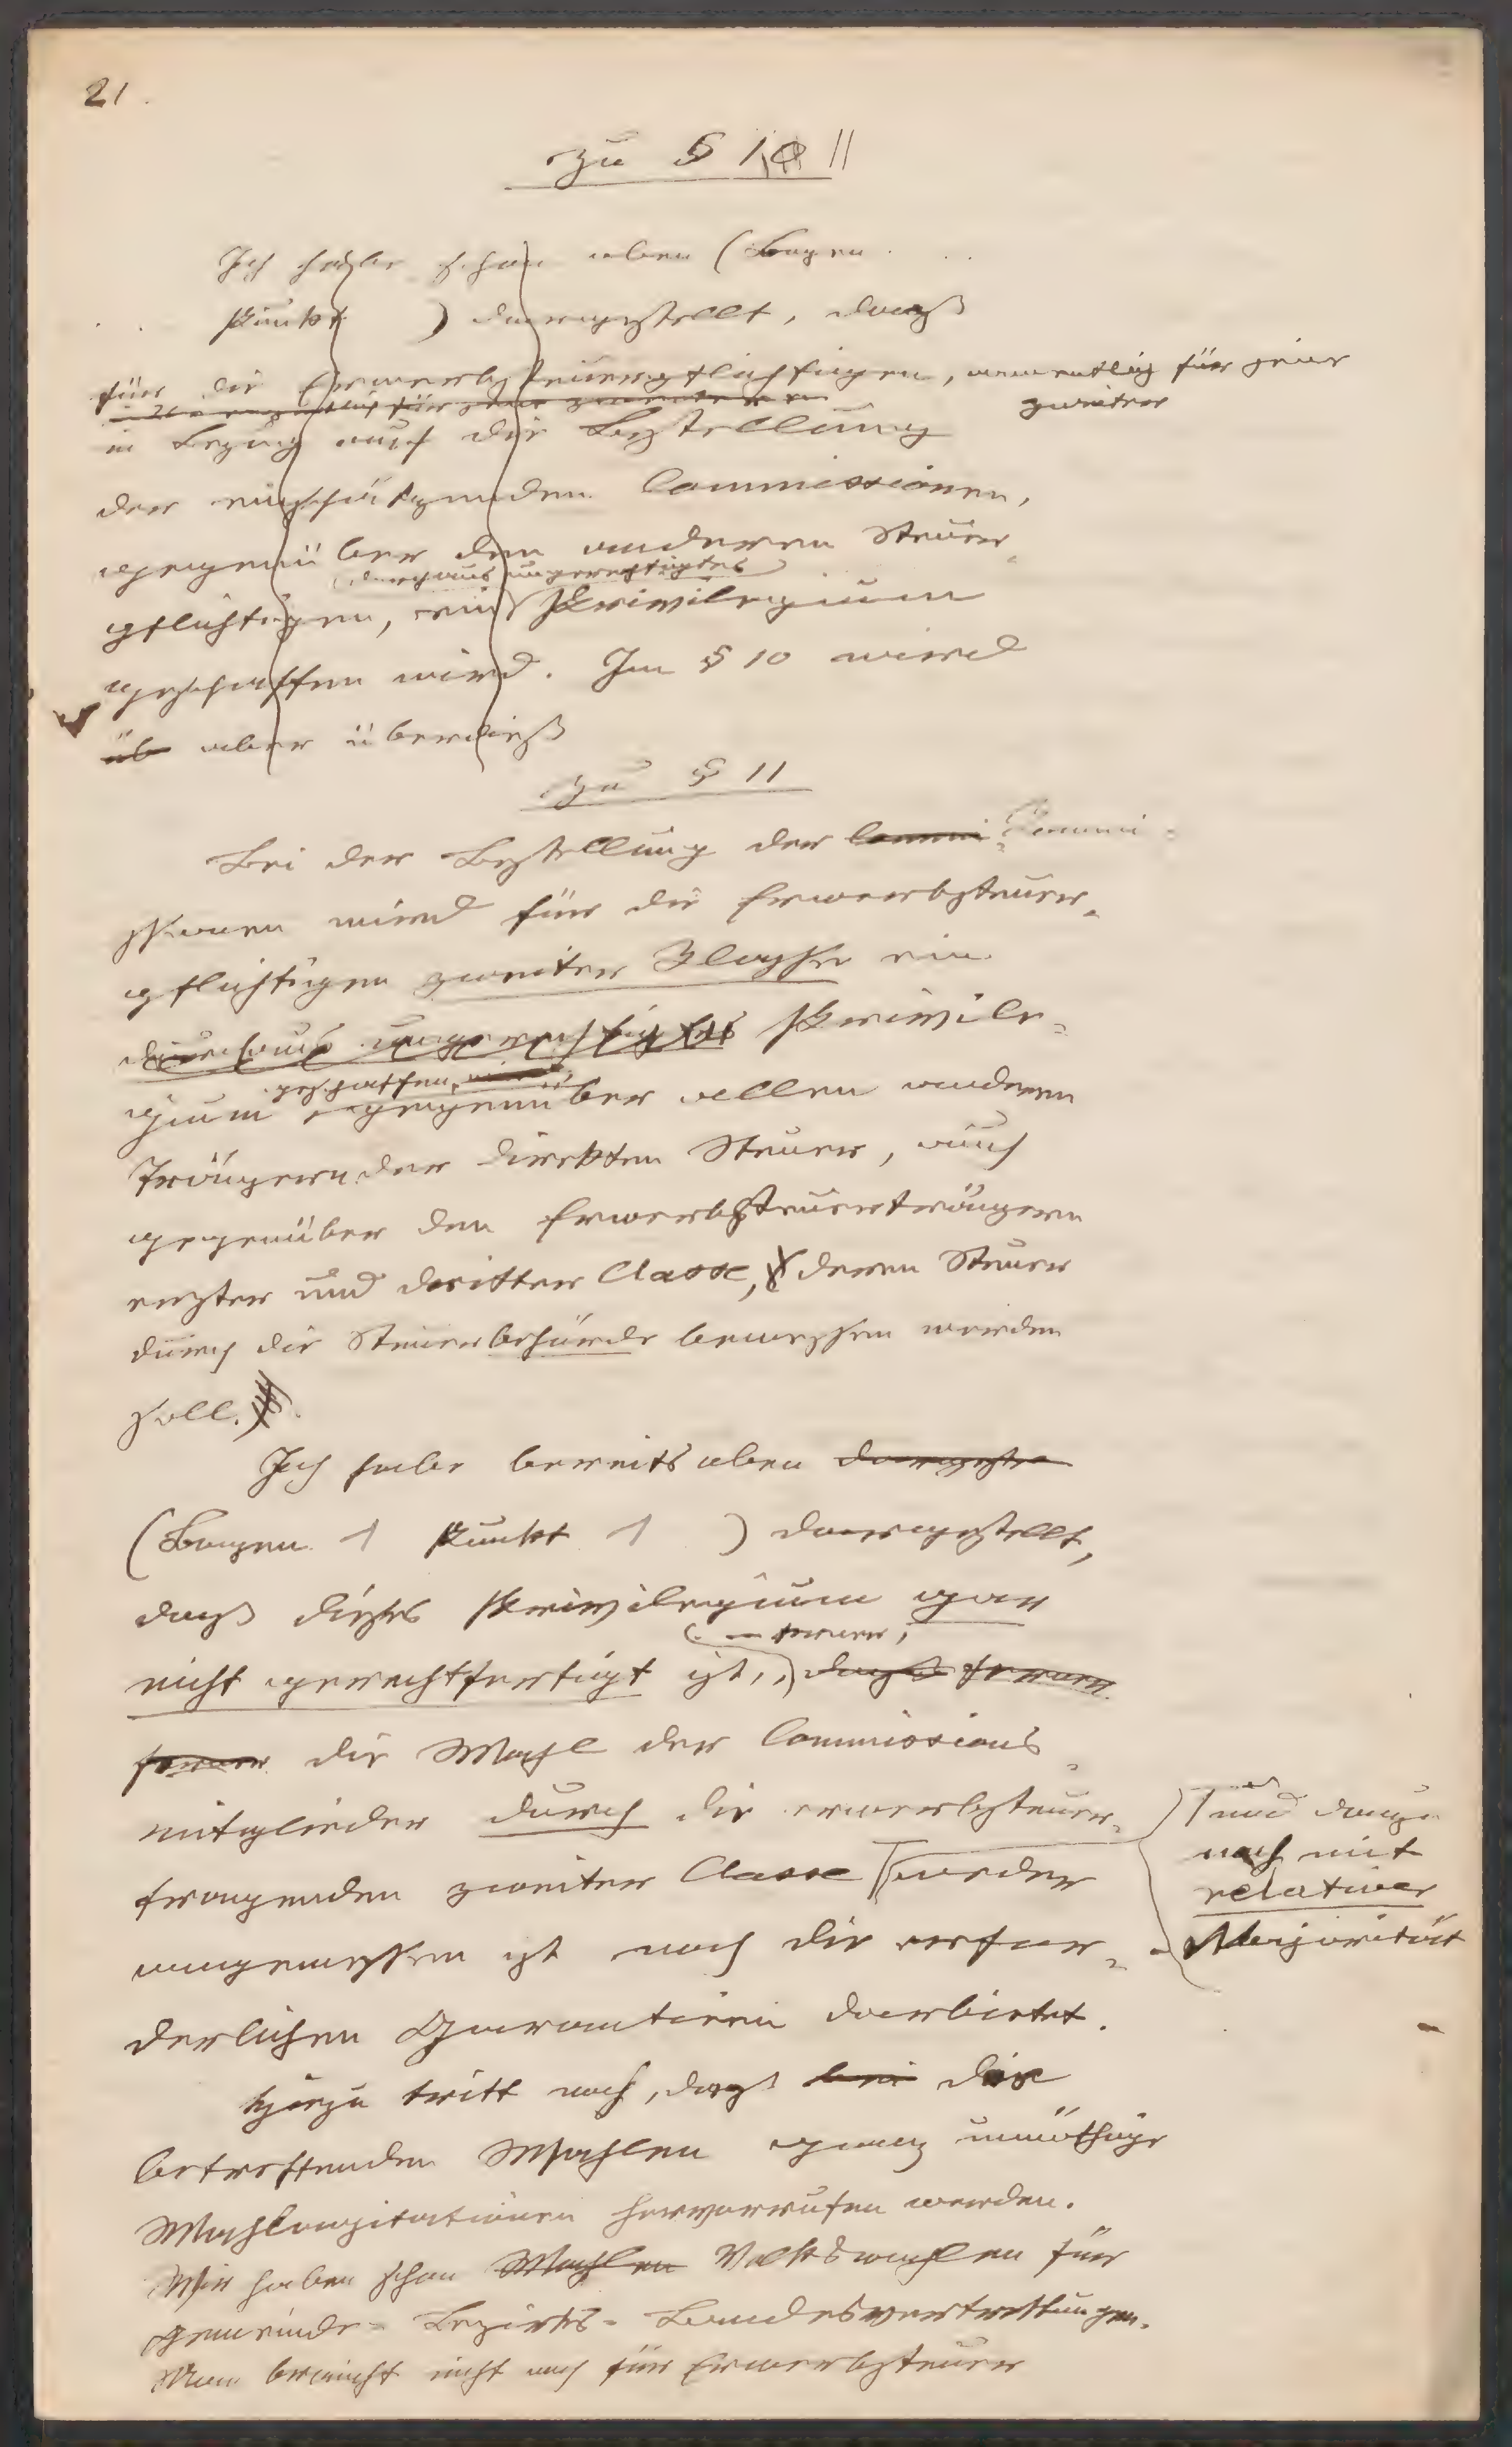 21.
Zu § 10 11
Ich habe schon oben (Bogen
Punkt ) dargestellt, dass
für die Erwerbsteuerpflichtigen, namentlich für jene
zweiter
in Bezug auf die Bestellung
der einschätzenden Commissionen,
gegenüber den anderen Steuer-
durchaus ungerechtigtes
pflichtigen, ein Privilegium
geschaffen wird. Im § 10 wird
üb aber überdieß
Zu § 11
Bei der Bestellung der Commi Commi-
ssionen wird für die Erwerbsteuer-
pflichtigen zweiter Klasse ein
durchaus ungerechtigtes Privile-
geschaffen, wird
gium gegenüber allen anderen
Trägern der direkten Steuer, auch
gegenüber den Erwerbsteuerträgern
erster und dritter Classe, deren Steuer
durch die Steuerbehörde bemessen werden
soll.
Ich habe bereits oben dargeste
(Bogen 1 Punkt 1 ) dargestellt,
dass dieses Privilegium gar
ferner,
nicht gerechtfertigt ist, dass ferner
ferner die Wahl der Commissions-
mitglieder durch die erwerbsteuer-
tragenden zweiter Classe weder
und dazu
noch mit
relativer
Majorität
angemessen ist noch die erfor-
derlichen Garantieen darbietet.
Hiezu tritt noch, dass bei die
betreffenden Wahlen ganz unnöthige
Wahlagitationen hervorrufen werden.
Wir haben schon Wahlen Volkswahlen für
Gemeinde- Bezirks- Landesvertretungen.
Man braucht nicht auch für Erwerbsteuer